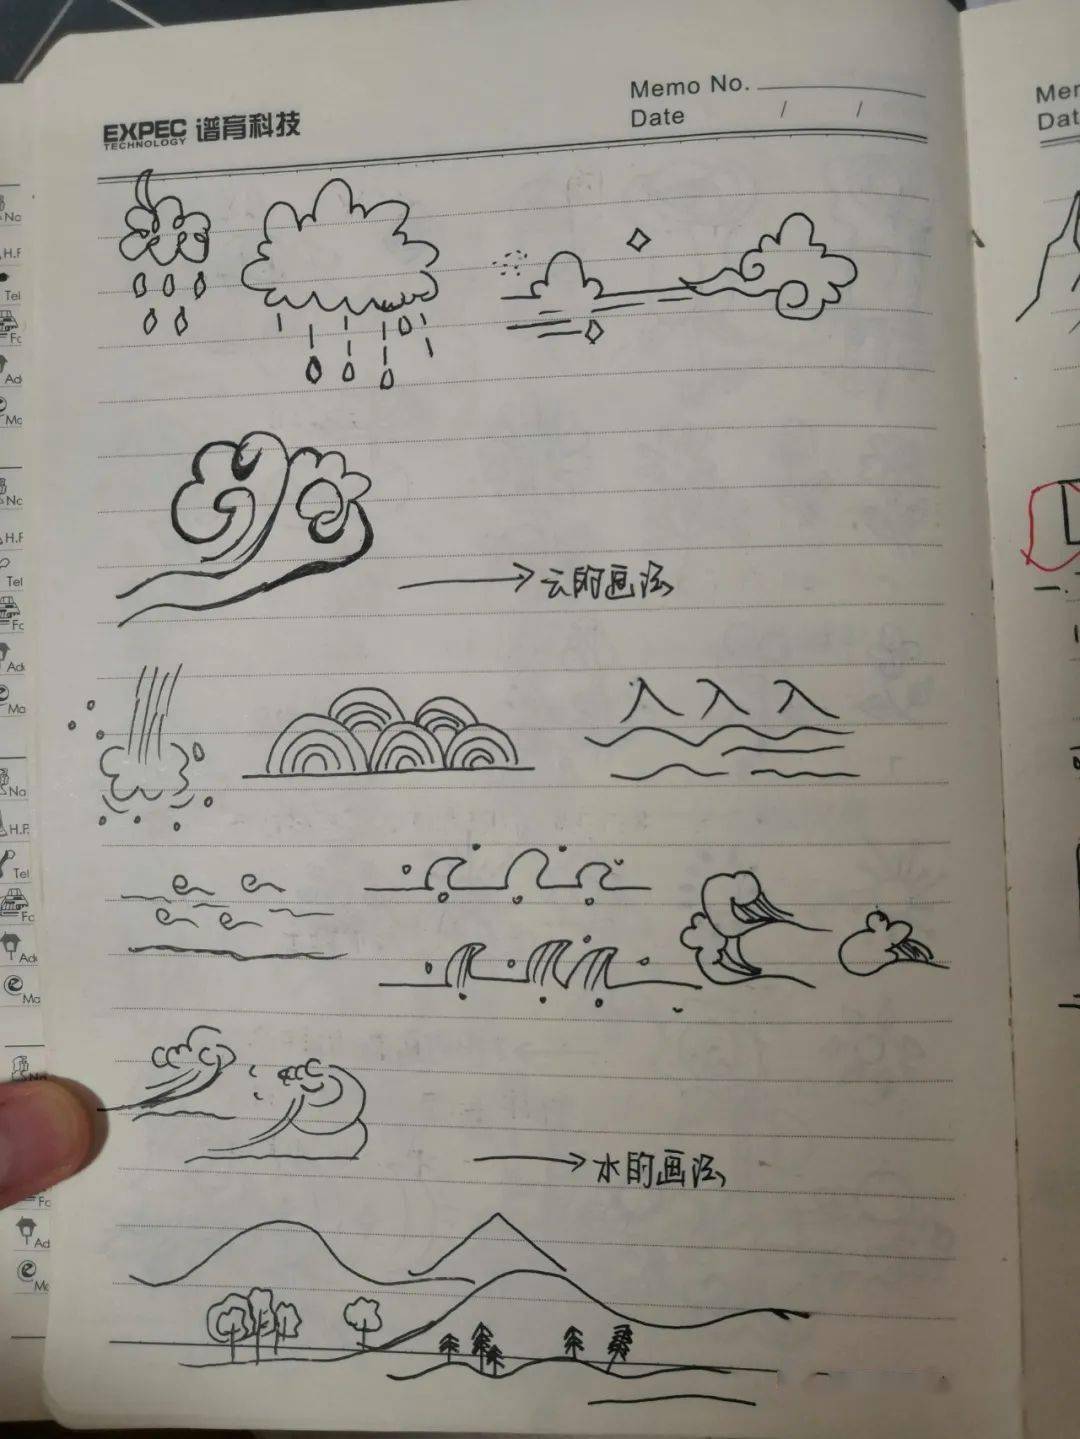 EXPEC 谱育科技
TECHNOLOGY
Memo No.
Date / /
云的画法
水的画法
No
H.P.
Tel
Fc
Ad
Mo
No
H.P.
Tel
Fc
Ad
Ma
No
H.P.
Tel
Fc
Ad
Ma
Fc
Ad
Mo